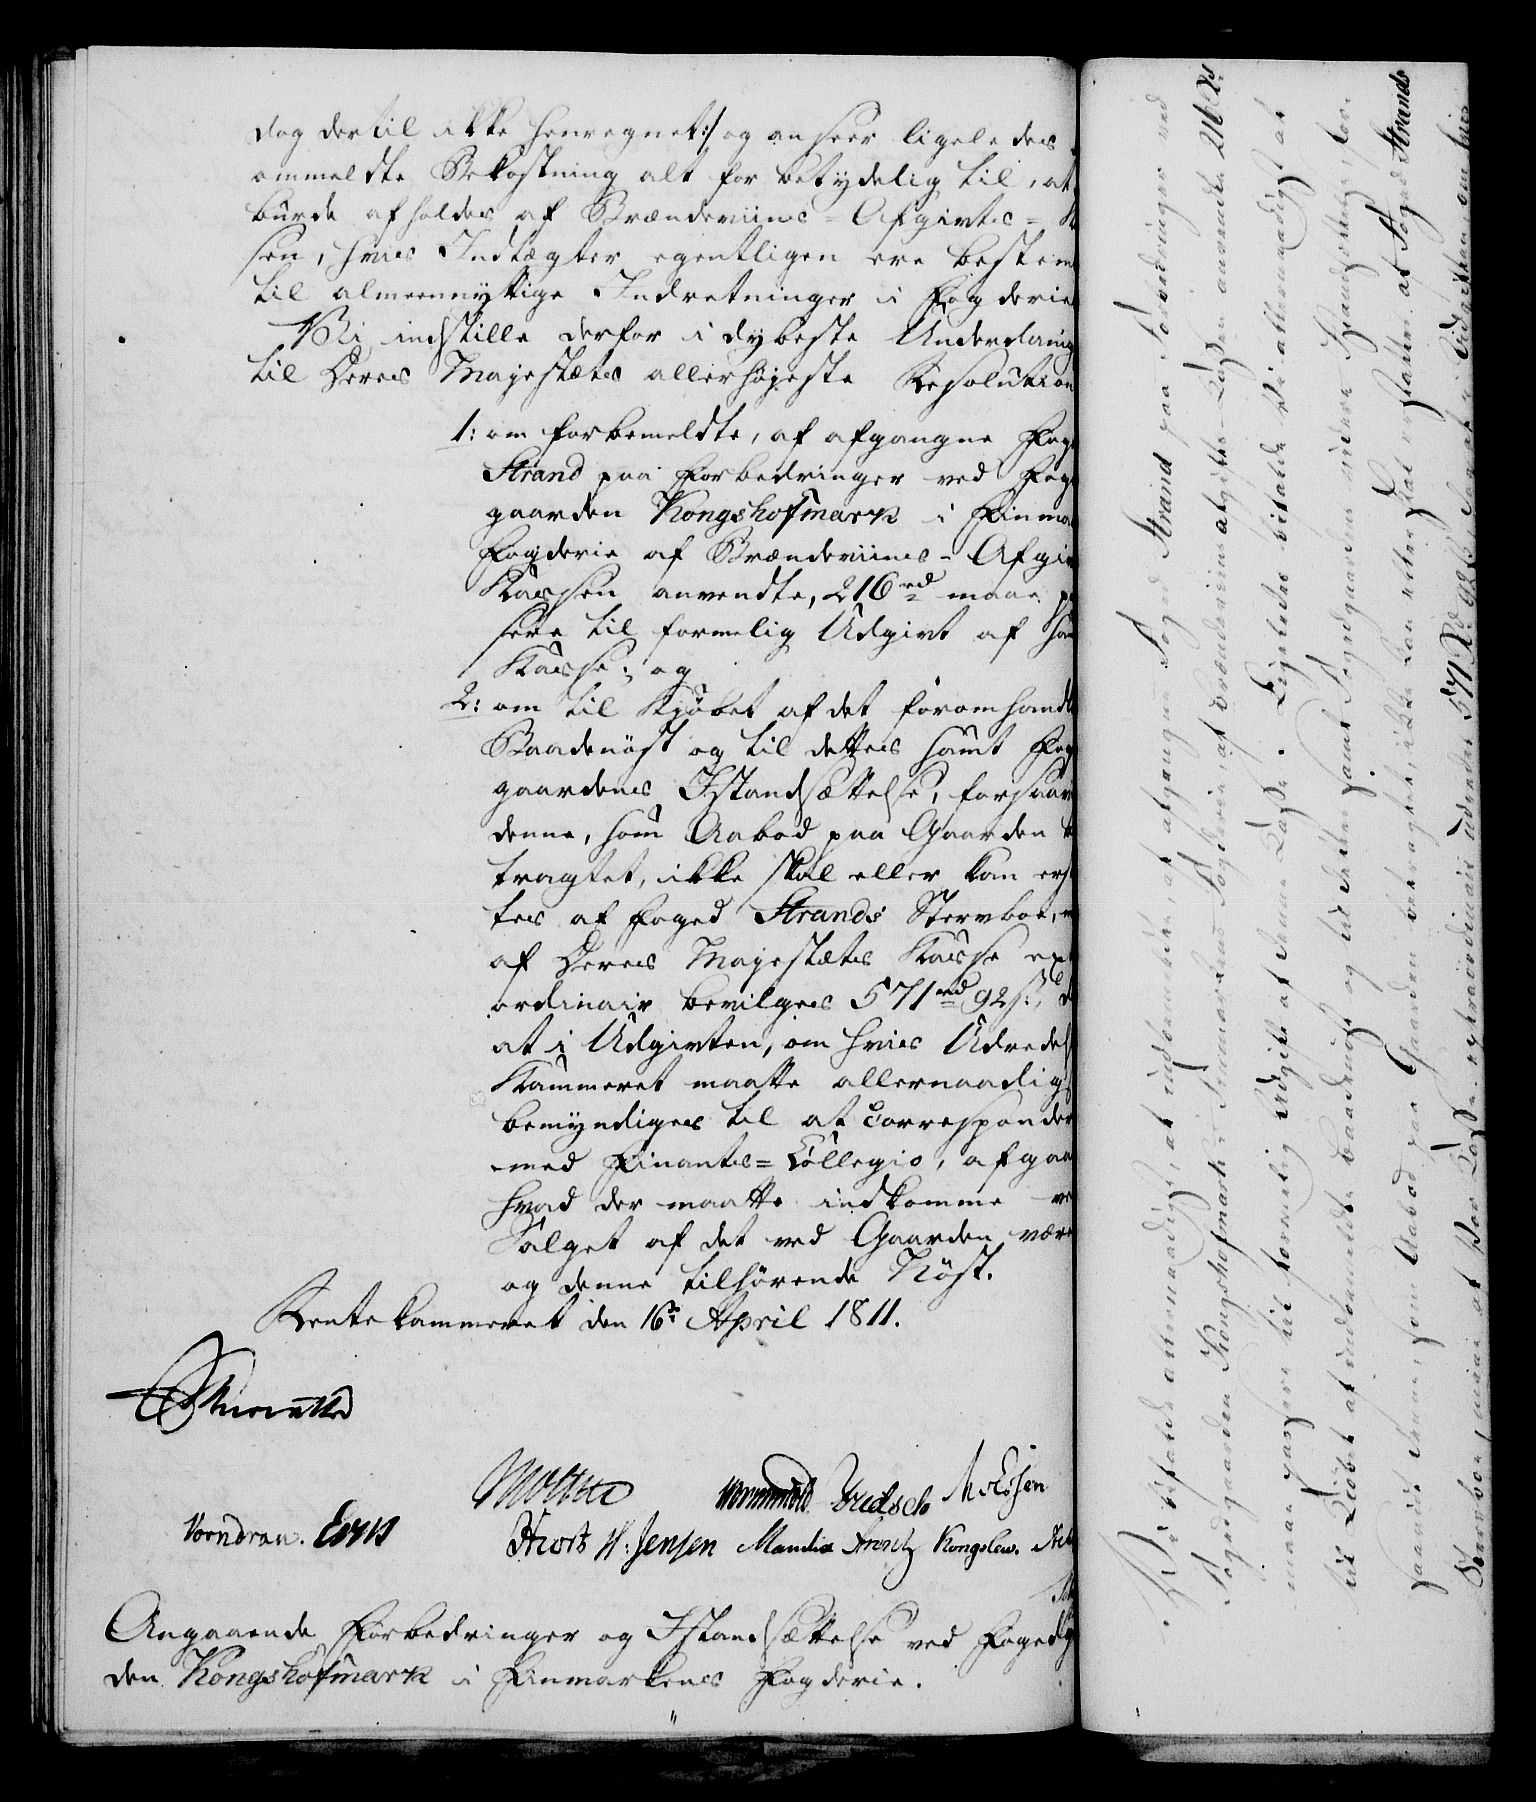 dog dertil ikke henregnet:/ og anseer ligeledes
ommeldte Bekostning alt for betydelig til, at
burde afholdes af Brændeviins-Afgivts=K
sen, hvis Indtægter egentligen ere bestem
til almeennyttige Indretninger i Fogderie
Vi indstille derfor i dybeste Underdanig
til Deres Majestæts allerhøjeste Resolution
1: om forbemeldte, af afgangne Fog
Strand paa Forbedringer ved Fog
gaarden Kongshofmark i Finma
Fogderie af Brændeviins-Afgiv
Kassen anvendte, 216 rd maae pa
sere til formelig Udgivt af sam
Kasse; og
2: om til Kjøbet af det foromhandl
Baadenøst og til dettes samt Fog
gaardens Istandsættelse, forsaavi
denne, som Aabod paa Gaarden be
tragtet, ikke skal eller kan erst
tes af Foged Strands Stervboe, m
af Deres Majestæts Kasse ext
ordinair bevilges 571 rd 92 s:, d
at i Udgivten, om hvis Udredels
Kammeret maatte allernaadigs
bemyndiges til at correspondere
med Finants=Collegio, afgaae
hvad der maatte indkomme ve
Salget af det ved Gaarden være
og denne tilhørende Nøst.
Rentekammeret den 16de April 1811.
Moltke
Vorndran.
H: Jensen Kongslew.
Angaaende Forbedringer og Istandsættelse ved Fogedg
den Kongshofmark i Finmarkens Fogderie.
Vi ville allernaadigst, at indbemeldte, af afgangne Foged Strand paa Forbedringer ved
Fogedgaarden Kongshofmark i Finmarkens Fogderie, af Brændeviins afgivts-Cassen anvendte 216 Rd
maae passere til formelig Udgift af samme Casse. Ligeledes ville Vi allernaadigst at
til Kiøbet af indbemeldte Baadenøst og til dettes samt Fogedgaardens videre Istandsættelse, for
saavidt denne, som Aabod paa Gaarden betragtet, ikke kan eller skal erstattes af Foged Strands
Stervboe, maae af Vor Casse extraordinair udredes 571 Rd 92 s.